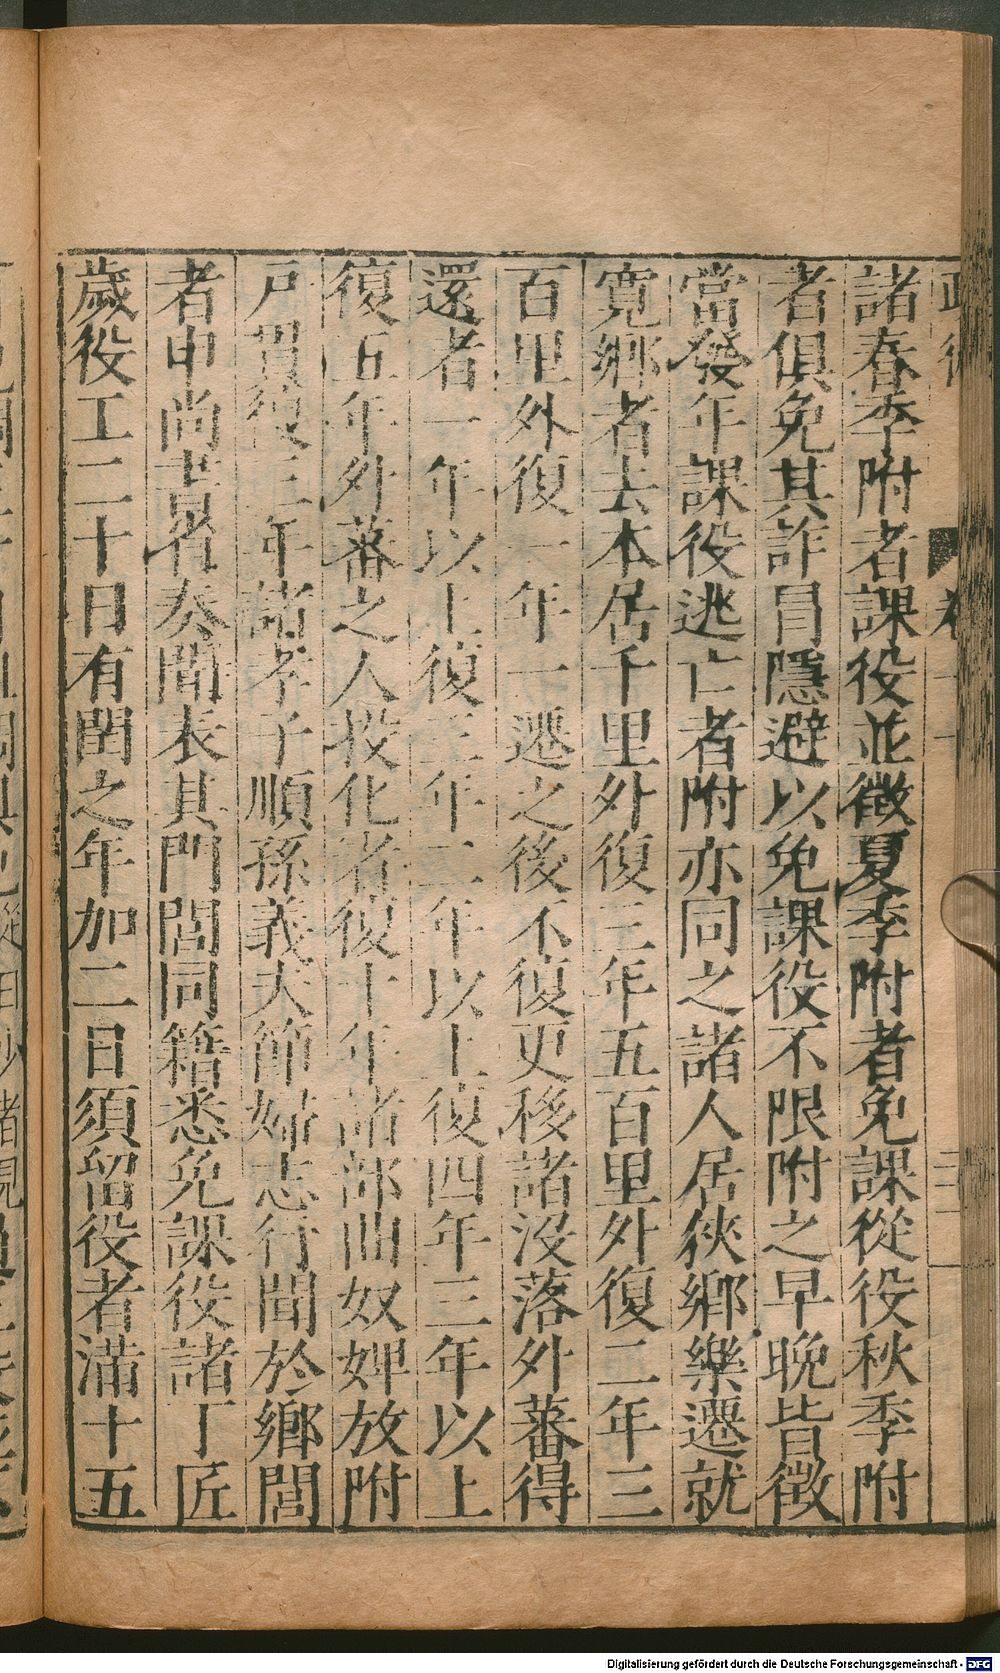 諸春季附者課役並徵夏季附者免課從役秋季附
者俱免其詐冒隱避以免課役不限附之早晚皆徵
當發年課役逃亡者附亦同之諸人居狹鄉樂遷就
寬鄉者去本居千里外復三年五百里外復二年三
百里外復一年一遷之後不復更移諸沒落外蕃得
還者一年以上復三年二年以上復四年三年以上
復五年外蕃之人投化者復十年諸部曲奴婢放附
戸貫復三年諸孝子順孫義夫節婦志行聞於鄉閭
者申尚書省奏聞表其門閭同籍悉免課役諸丁匠
歲役工二十日有閏之年加二日須留役者滿十五
Digitalisierung gefördert durch die Deutsche Forschungsgemeinschaft - DFG